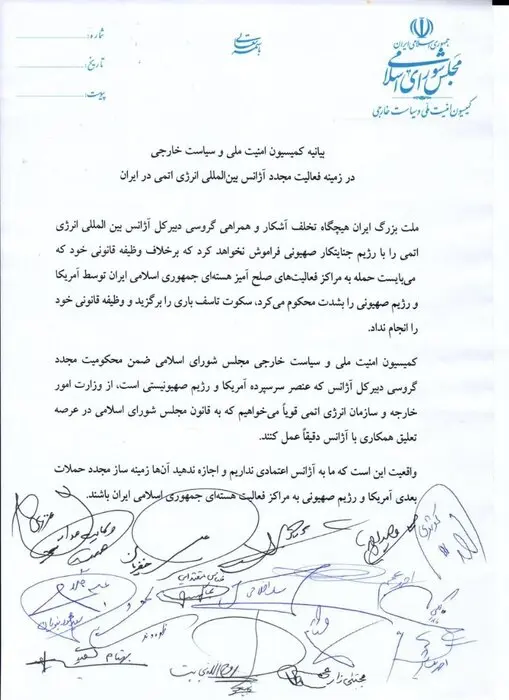 جمهوری اسلامی ایران
مجلس شورای اسلامی
کمیسیون امنیت ملی و سیاست خارجی
باسمه تعالی
شماره:
تاریخ:
پیوست:
بیانیه کمیسیون امنیت ملی و سیاست خارجی
در زمینه فعالیت مجدد آژانس بین‌المللی انرژی اتمی در ایران
ملت بزرگ ایران هیچگاه تخلف آشکار و همراهی گروسی دبیرکل آژانس بین المللی انرژی
اتمی را با رژیم جنایتکار صهیونی فراموش نخواهد کرد که برخلاف وظیفه قانونی خود که
می‌بایست حمله به مراکز فعالیت‌های صلح آمیز هسته‌ای جمهوری اسلامی ایران توسط آمریکا
و رژیم صهیونی را بشدت محکوم می‌کرد، سکوت تاسف باری را برگزید و وظیفه قانونی خود
را انجام نداد.
کمیسیون امنیت ملی و سیاست خارجی مجلس شورای اسلامی ضمن محکومیت مجدد
گروسی دبیرکل آژانس که عنصر سرسپرده آمریکا و رژیم صهیونیستی است، از وزارت امور
خارجه و سازمان انرژی اتمی قویاً می‌خواهیم که به قانون مجلس شورای اسلامی در عرصه
تعلیق همکاری با آژانس دقیقاً عمل کنند.
واقعیت این است که ما به آژانس اعتمادی نداریم و اجازه ندهید آن‌ها زمینه ساز مجدد حملات
بعدی آمریکا و رژیم صهیونی به مراکز فعالیت هسته‌ای جمهوری اسلامی ایران باشند.
عزیزی
کوثری
مجتبی زارعی
بهنام سعیدی